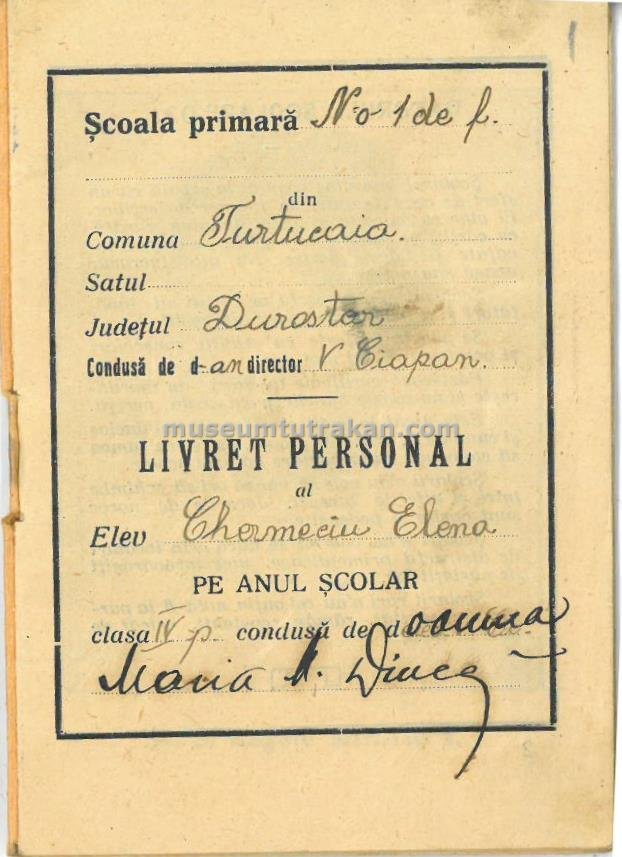 1
Școala primară No 1 de f.
din
Comuna Turtucaia.
Satul
Județul Durostor
Condusă de d-an director V Ciapan.
museumtutrakan.com
LIVRET PERSONAL
al
Elev Chermeciu Elena
PE ANUL ȘCOLAR
clasa IV p. condusă de doamna
Maria